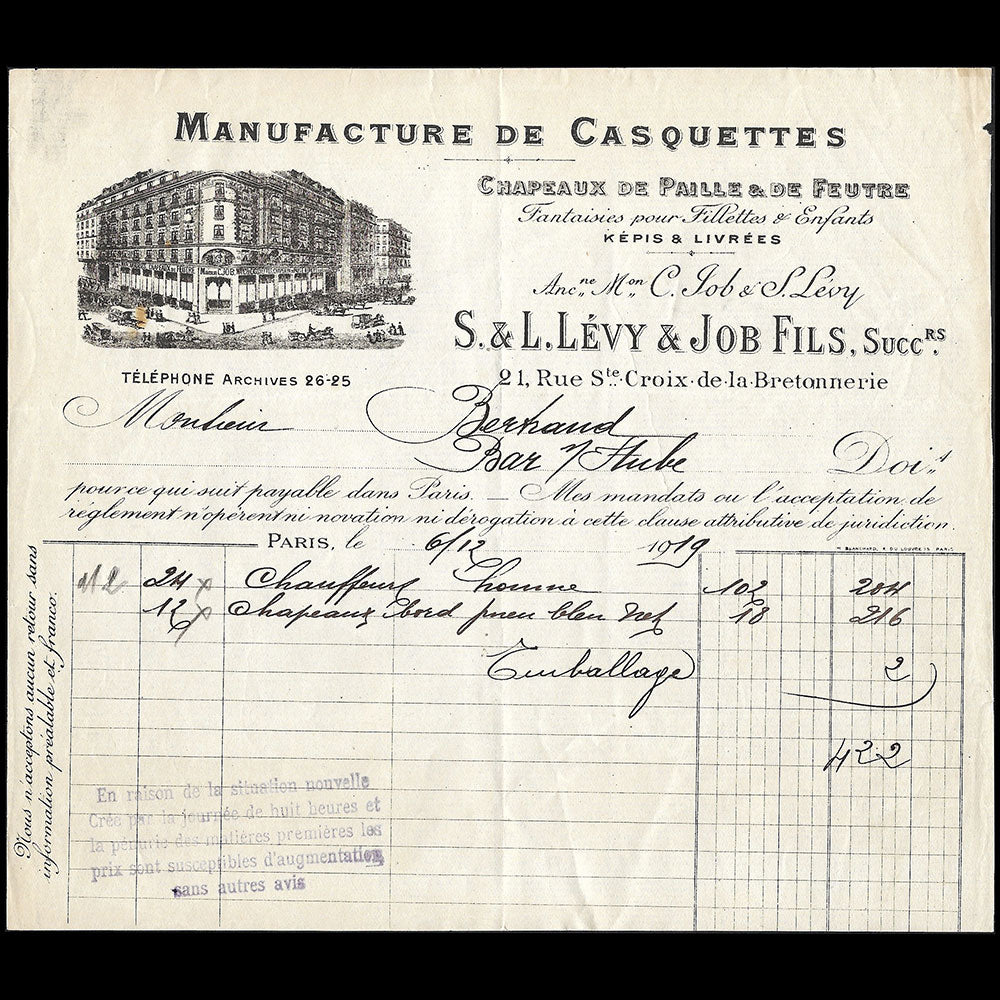 MANUFACTURE DE CASQUETTES
CHAPEAUX DE PAILLE & DE FEUTRE
Fantaisies pour Fillettes & Enfants
KÉPIS & LIVRÉES
Anc.ne M.on C. Job & S. Lévy
S. & L. LÉVY & JOB FILS, SUCC.RS
TÉLÉPHONE ARCHIVES 26-25
21, Rue Ste. Croix-de-la-Bretonnerie
Monsieur Bertrand
Bar s/ Aube Doit
pour ce qui suit payable dans Paris. — Mes mandats ou l'acceptation de
règlement n'opèrent ni novation ni dérogation à cette clause attributive de juridiction.
PARIS, le 6/12 1919
24 Chauffeurs homme 102 204
12 Chapeaux bord pneu bleu net 18 216
Emballage 2
422
Nous n'acceptons aucun retour sans
information préalable et franco.
En raison de la situation nouvelle
Crée par la journée de huit heures et
la pénurie des matières premières les
prix sont susceptibles d'augmentation
sans autres avis